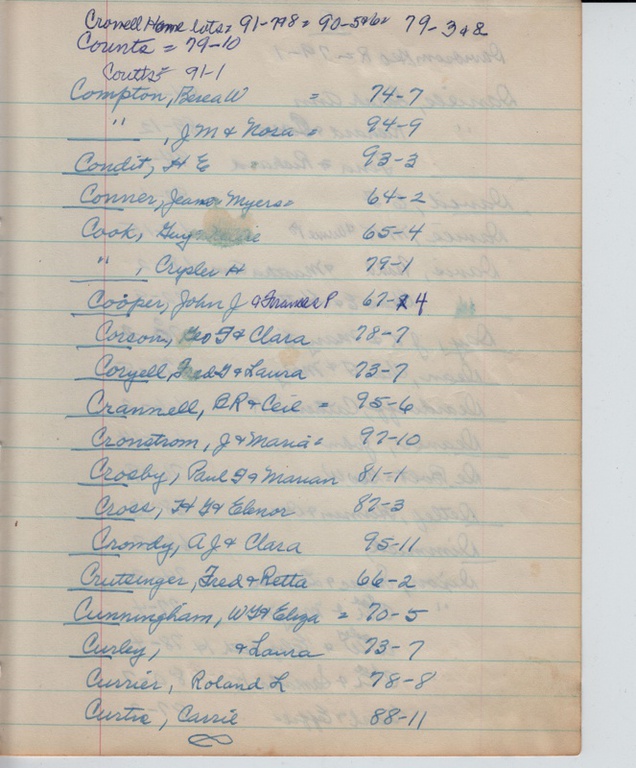 Crowell Home lots = 91-7+8 = 90-5+6 = 79-3+8
Counts = 79-10
Coutts = 91-1
Compton, Berea W = 74-7
" , J M & Nora = 94-9
Condit, H E 93-3
Conner, Jeane Myers = 64-2
Cook, Guy 65-4
" , Crysler H 79-1
Cooper, John J & Frances P 67- 4
Corson, Geo G & Clara 78-7
Coryell, Fred G & Laura 73-7
Crannell, B R & Ceil = 95-6
Cronstrom, J & Maria = 97-10
Crosby, Paul G & Marian 81-1
Cross, H G & Elenor 87-3
Crowdy, A J & Clara 95-11
Crutsinger, Fred & Retta 66-2
Cunningham, W G & Eliza = 70-5
Curley, & Laura 73-7
Currier, Roland L 78-8
Curtis, Carrie 88-11